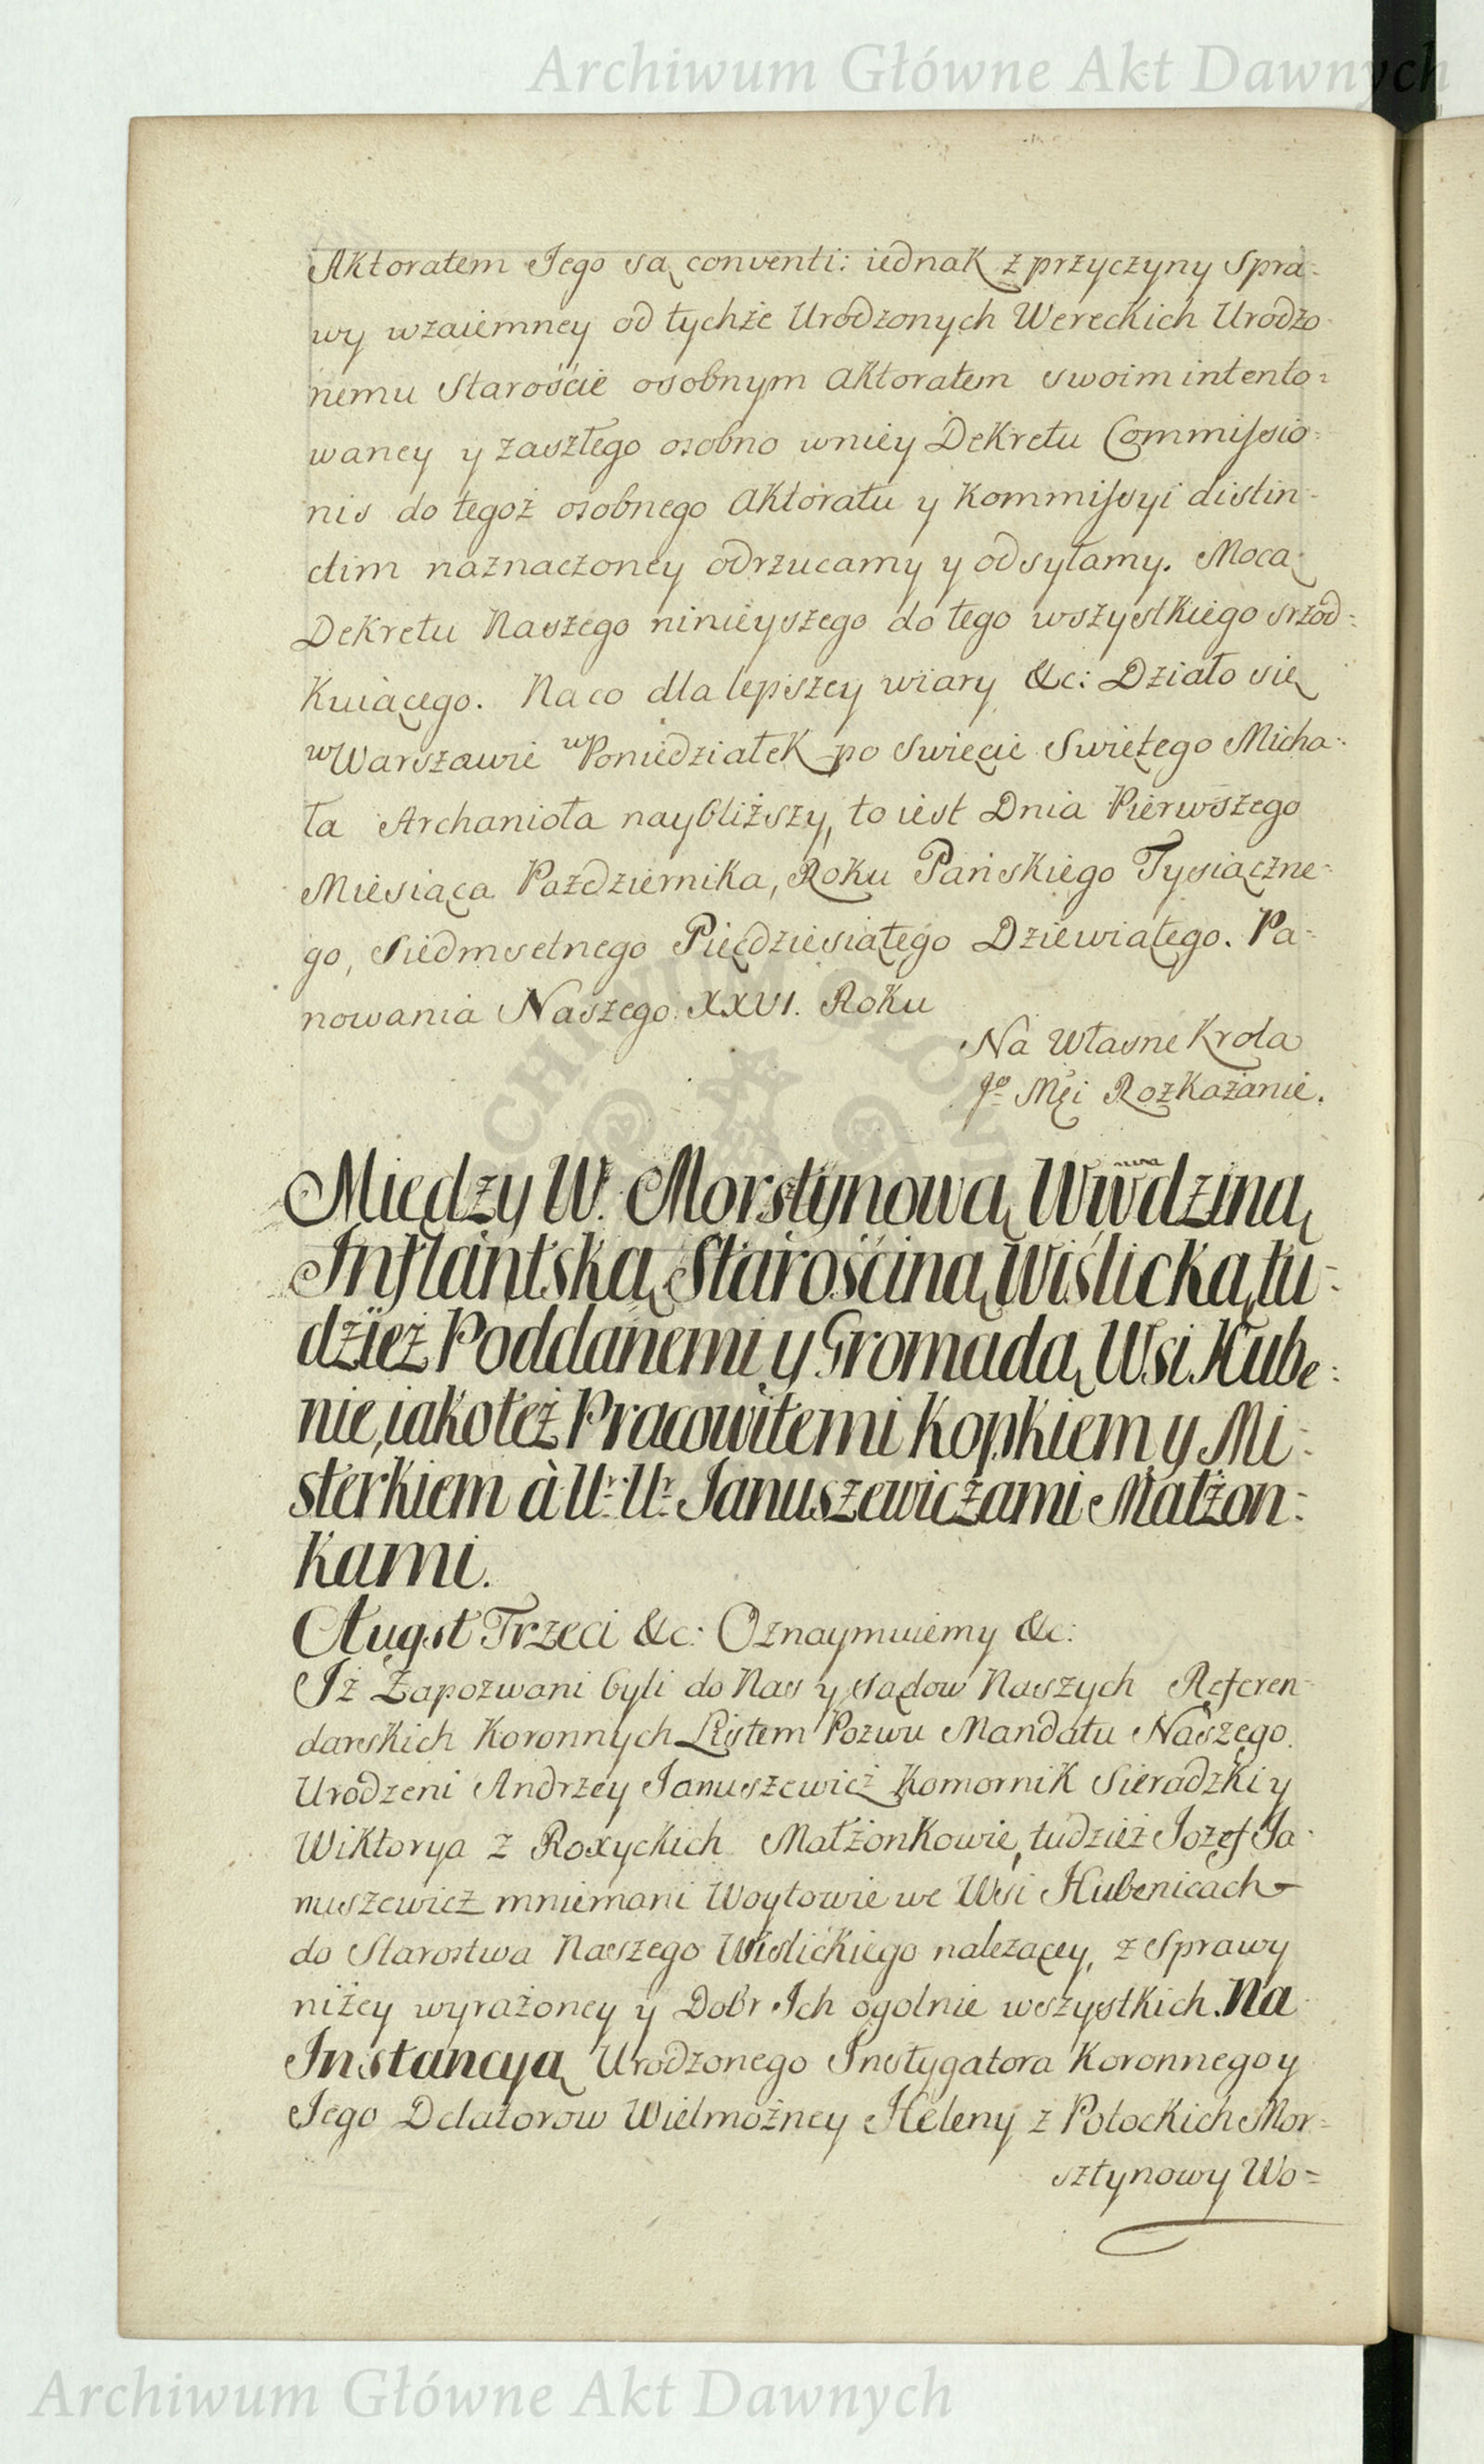 Archiwum Główne Akt Dawnych
Aktoratem Jego są conventi: iednak z przyczyny Spra-
wy wzaiemney od tychże Urodzonych Wereckich Urodzo-
nemu Staroście osobnym Aktoratem swoim intento-
waney y zaszłego osobno wniey Dekretu Commissio-
nis do tegoż osobnego Aktoratu y Kommissyi distin-
ctim naznaczoney odrzucamy y odsyłamy. Mocą
Dekretu Naszego ninieyszego do tego wszystkiego srzod-
Kuiącego. Na co dla lepszey wiary &c: Działo się
w Warszawie w Poniedziałek po Swięcie Swiętego Micha-
ła Archanioła naybliższy, to iest Dnia Pierwszego
Miesiąca Pazdziernika, Roku Pańskiego Tysiączne-
go, Siedmsetnego Pięcdziesiątego Dziewiątego. Pa-
nowania Naszego XXVI. Roku
Na Własne Krola
Jº Mći Rozkazanie.
Między W. Morstynową Wwdziną
Inflantską Starościną Wiślicką, tu-
dzież Poddanemi y Gromadą Wsi Hube-
nie, iako też Pracowitemi Kopkiem y Mi-
sterkiem à Ur. Ur. Januszewiczami Małżon-
kami.
August Trzeci &c: Oznaymuiemy &c:
Iż Zapozwani byli do Nas y sądow Naszych Referen-
darskich Koronnych Listem Pozwu Mandatu Naszego.
Urodzeni Andrzey Januszewicz Komornik Sieradzki y
Wiktorya z Roxyckich Małżonkowie, tudzież Jozef Ja-
nuszewicz mniemani Woytowie we Wsi Hubenicach
do Starostwa Naszego Wislickiego należącey, z Sprawy
niżey wyrażoney y Dobr Ich ogolnie wszystkich. Na
Instancyą Urodzonego Instygatora Koronnego y
Jego Delatorow Wielmożney Heleny z Potockich Mor-
sztynowy Wo-
Archiwum Główne Akt Dawnych